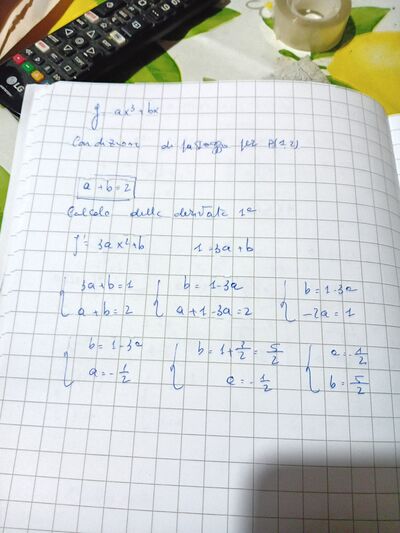 LG
y = ax³ + bx
Condizione di passaggio per P(1,2)
a + b = 2
Calcolo della derivata 1ª
y' = 3ax² + b 1 = 3a + b
{ 3a + b = 1 { b = 1 - 3a { b = 1 - 3a
a + b = 2 a + 1 - 3a = 2 -2a = 1
{ b = 1 - 3a { b = 1 + 3/2 = 5/2 { a = -1/2
a = -1/2 a = -1/2 b = 5/2